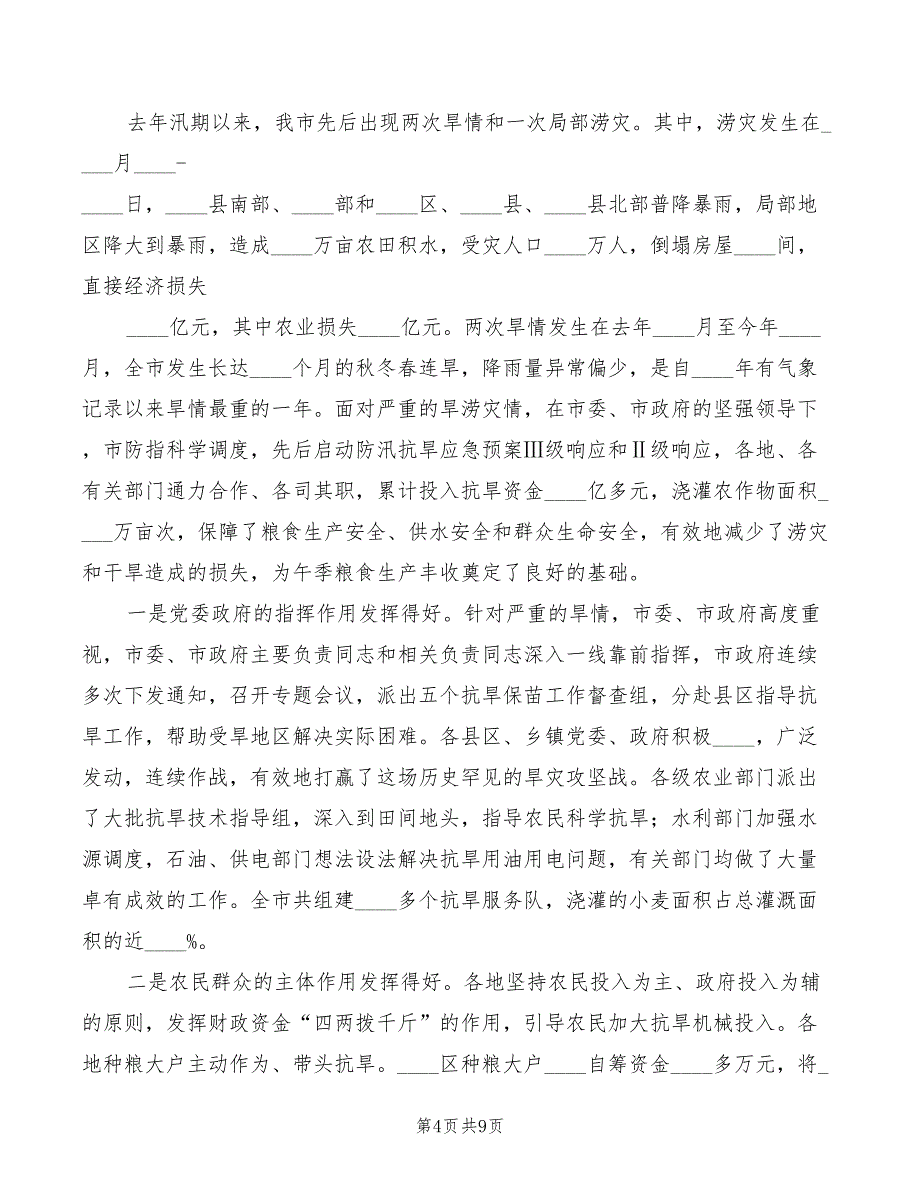 去年汛期以来，我市先后出现两次旱情和一次局部涝灾。其中，涝灾发生在_
___月____-
____日，____县南部、____部和____区、____县、____县北部普降暴雨，局部地
区降大到暴雨，造成____万亩农田积水，受灾人口____万人，倒塌房屋____间，
直接经济损失
____亿元，其中农业损失____亿元。两次旱情发生在去年____月至今年____
月，全市发生长达____个月的秋冬春连旱，降雨量异常偏少，是自____年有气象
记录以来旱情最重的一年。面对严重的旱涝灾情，在市委、市政府的坚强领导下
，市防指科学调度，先后启动防汛抗旱应急预案Ⅲ级响应和Ⅱ级响应，各地、各
有关部门通力合作、各司其职，累计投入抗旱资金____亿多元，浇灌农作物面积_
___万亩次，保障了粮食生产安全、供水安全和群众生命安全，有效地减少了涝灾
和干旱造成的损失，为午季粮食生产丰收奠定了良好的基础。
一是党委政府的指挥作用发挥得好。针对严重的旱情，市委、市政府高度重
视，市委、市政府主要负责同志和相关负责同志深入一线靠前指挥，市政府连续
多次下发通知，召开专题会议，派出五个抗旱保苗工作督查组，分赴县区指导抗
旱工作，帮助受旱地区解决实际困难。各县区、乡镇党委、政府积极____，广泛
发动，连续作战，有效地打赢了这场历史罕见的旱灾攻坚战。各级农业部门派出
了大批抗旱技术指导组，深入到田间地头，指导农民科学抗旱；水利部门加强水
源调度，石油、供电部门想法设法解决抗旱用油用电问题，有关部门均做了大量
卓有成效的工作。全市共组建____多个抗旱服务队，浇灌的小麦面积占总灌溉面
积的近____%。
二是农民群众的主体作用发挥得好。各地坚持农民投入为主、政府投入为辅
的原则，发挥财政资金“四两拨千斤”的作用，引导农民加大抗旱机械投入。各
地种粮大户主动作为、带头抗旱。____区种粮大户____自筹资金____多万元，将_
第4页 共9页